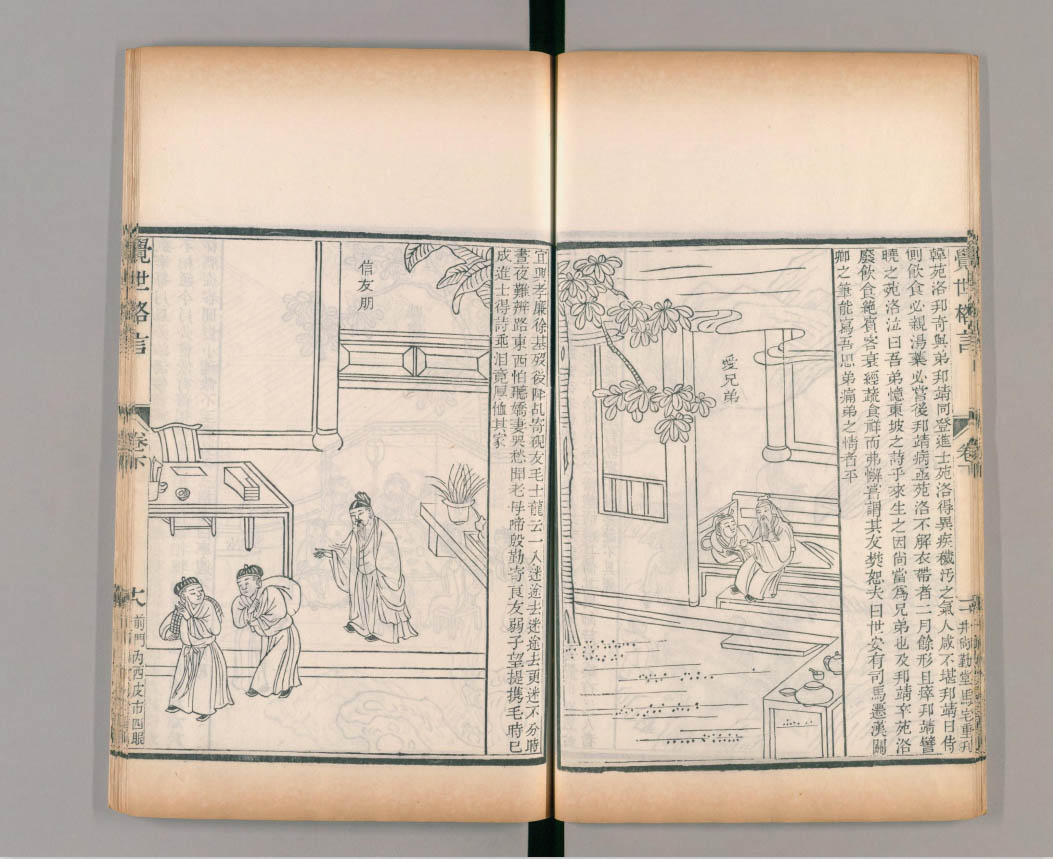 覺世格言
卷下
井尚勤堂馬宅重刊
韓苑洛邦奇與弟邦靖同登進士苑洛得異疾穢污之氣人咸不堪邦靖日侍
側飲食必親湯藥必嘗後邦靖病亟苑洛不解衣帶者二月餘形且瘁邦靖譬
曉之苑洛泣曰吾弟憶東坡之詩乎來生之因尚當爲兄弟也及邦靖卒苑洛
廢飲食絕賓客衰經蔬食祥而弗懈嘗謂其友樊恕夫曰世安有司馬遷漢關
卿之筆能寫吾思弟痛弟之情者乎
愛兄弟
宜興孝廉徐基歿後降乩寄硯友毛士龍云一入迷途去迷途去更迷不分時
晝夜難辨路東西怕聽嬌妻哭愁聞老母啼殷勤寄良友弱子望提携毛時已
成進士得詩垂泪竟厚恤其家
信友朋
覺世格言
卷下
十八
前門內西皮市四眼